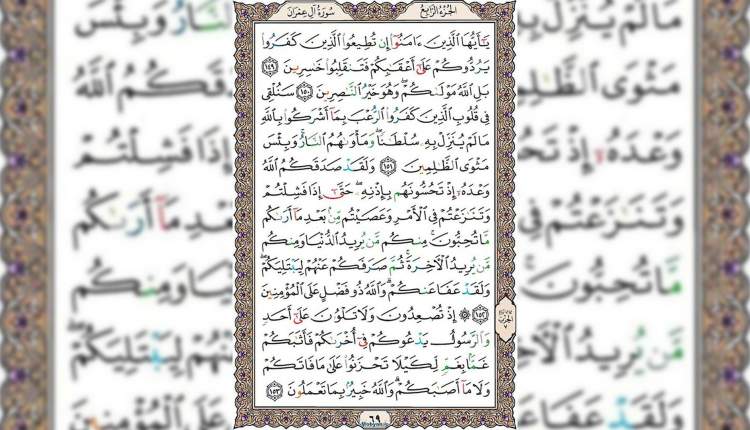 سُورَةُ آلِ عِمْرَانَ
الجُزْءُ الرَّابِعُ
يَـٰٓأَيُّهَا ٱلَّذِينَ ءَامَنُوٓا۟ إِن تُطِيعُوا۟ ٱلَّذِينَ كَفَرُوا۟
يَرُدُّوكُمْ عَلَىٰٓ أَعْقَـٰبِكُمْ فَتَنقَلِبُوا۟ خَـٰسِرِينَ ١٤٩
بَلِ ٱللَّهُ مَوْلَىٰكُمْ ۖ وَهُوَ خَيْرُ ٱلنَّـٰصِرِينَ ١٥٠ سَنُلْقِى
فِى قُلُوبِ ٱلَّذِينَ كَفَرُوا۟ ٱلرُّعْبَ بِمَآ أَشْرَكُوا۟ بِٱللَّهِ
مَا لَمْ يُنَزِّلْ بِهِۦ سُلْطَـٰنًا ۖ وَمَأْوَىٰهُمُ ٱلنَّارُ ۚ وَبِئْسَ
مَثْوَى ٱلظَّـٰلِمِينَ ١٥١ وَلَقَدْ صَدَقَكُمُ ٱللَّهُ
وَعْدَهُۥٓ إِذْ تَحُسُّونَهُم بِإِذْنِهِۦ ۖ حَتَّىٰٓ إِذَا فَشِلْتُمْ
وَتَنَـٰزَعْتُمْ فِى ٱلْأَمْرِ وَعَصَيْتُم مِّنۢ بَعْدِ مَآ أَرَىٰكُم
مَّا تُحِبُّونَ ۚ مِنكُم مَّن يُرِيدُ ٱلدُّنْيَا وَمِنكُم
مَّن يُرِيدُ ٱلْـَٔاخِرَةَ ۚ ثُمَّ صَرَفَكُمْ عَنْهُمْ لِيَبْتَلِيَكُمْ ۖ
وَلَقَدْ عَفَا عَنكُمْ ۗ وَٱللَّهُ ذُو فَضْلٍ عَلَى ٱلْمُؤْمِنِينَ
١٥٢ ۞ إِذْ تُصْعِدُونَ وَلَا تَلْوُۥنَ عَلَىٰٓ أَحَدٍ
وَٱلرَّسُولُ يَدْعُوكُمْ فِىٓ أُخْرَىٰكُمْ فَأَثَـٰبَكُمْ
غَمًّۢا بِغَمٍّ لِّكَيْلَا تَحْزَنُوا۟ عَلَىٰ مَا فَاتَكُمْ
وَلَا مَآ أَصَـٰبَكُمْ ۗ وَٱللَّهُ خَبِيرٌۢ بِمَا تَعْمَلُونَ ١٥٣
٦٩